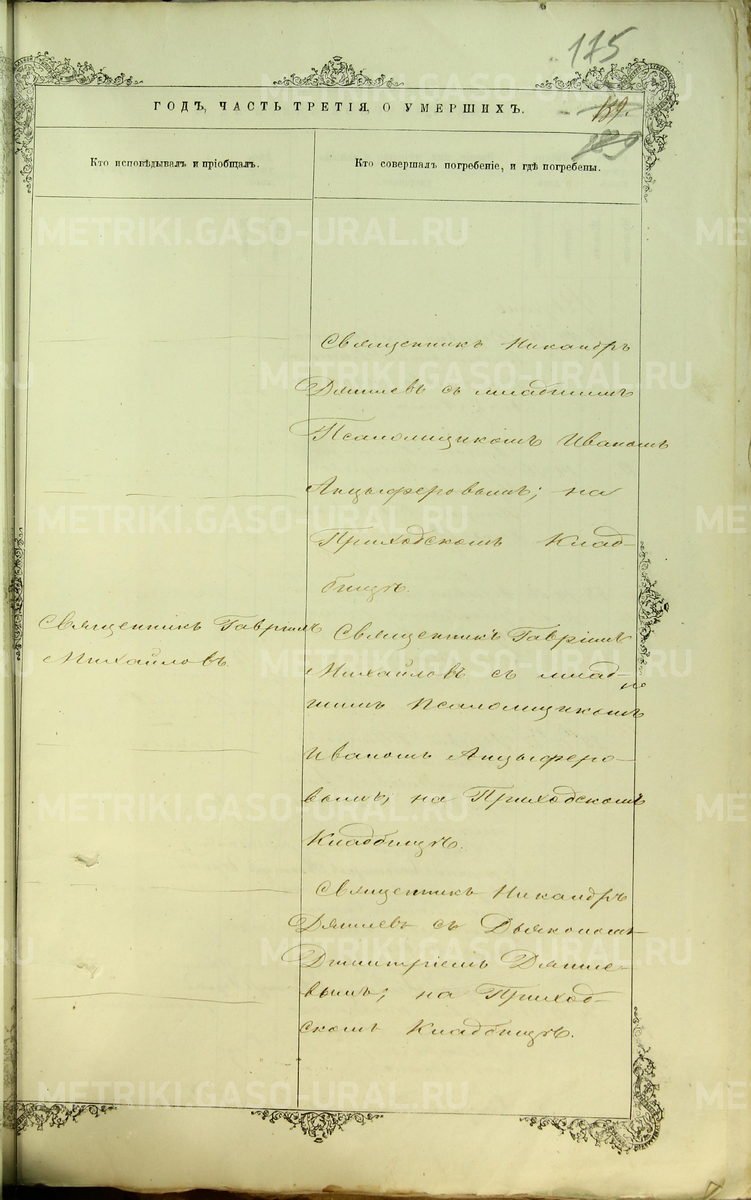 175
ГОДЪ, ЧАСТЬ ТРЕТІЯ, О УМЕРШИХЪ.
159.
Кто исповѣдывалъ и пріобщалъ.
Кто совершалъ погребеніе, и гдѣ погребены.
Священникъ Никандръ
Дягилевъ съ младшимъ
Псаломщикомъ Иваномъ
Анцыферовымъ; на
Приходскомъ Клад-
бищѣ.
Священникъ Гавріилъ
Михайловъ
Священникъ Гавріилъ
Михайловъ съ млад-
шимъ Псаломщикомъ
Иваномъ Анцыферо-
вымъ, на Приходскомъ
Кладбищѣ.
Священникъ Никандръ
Дягилевъ съ Дьякономъ
Димитріемъ Дягиле-
вымъ; на Приход-
скомъ Кладбищѣ.
METRIKI.GASO-URAL.RU